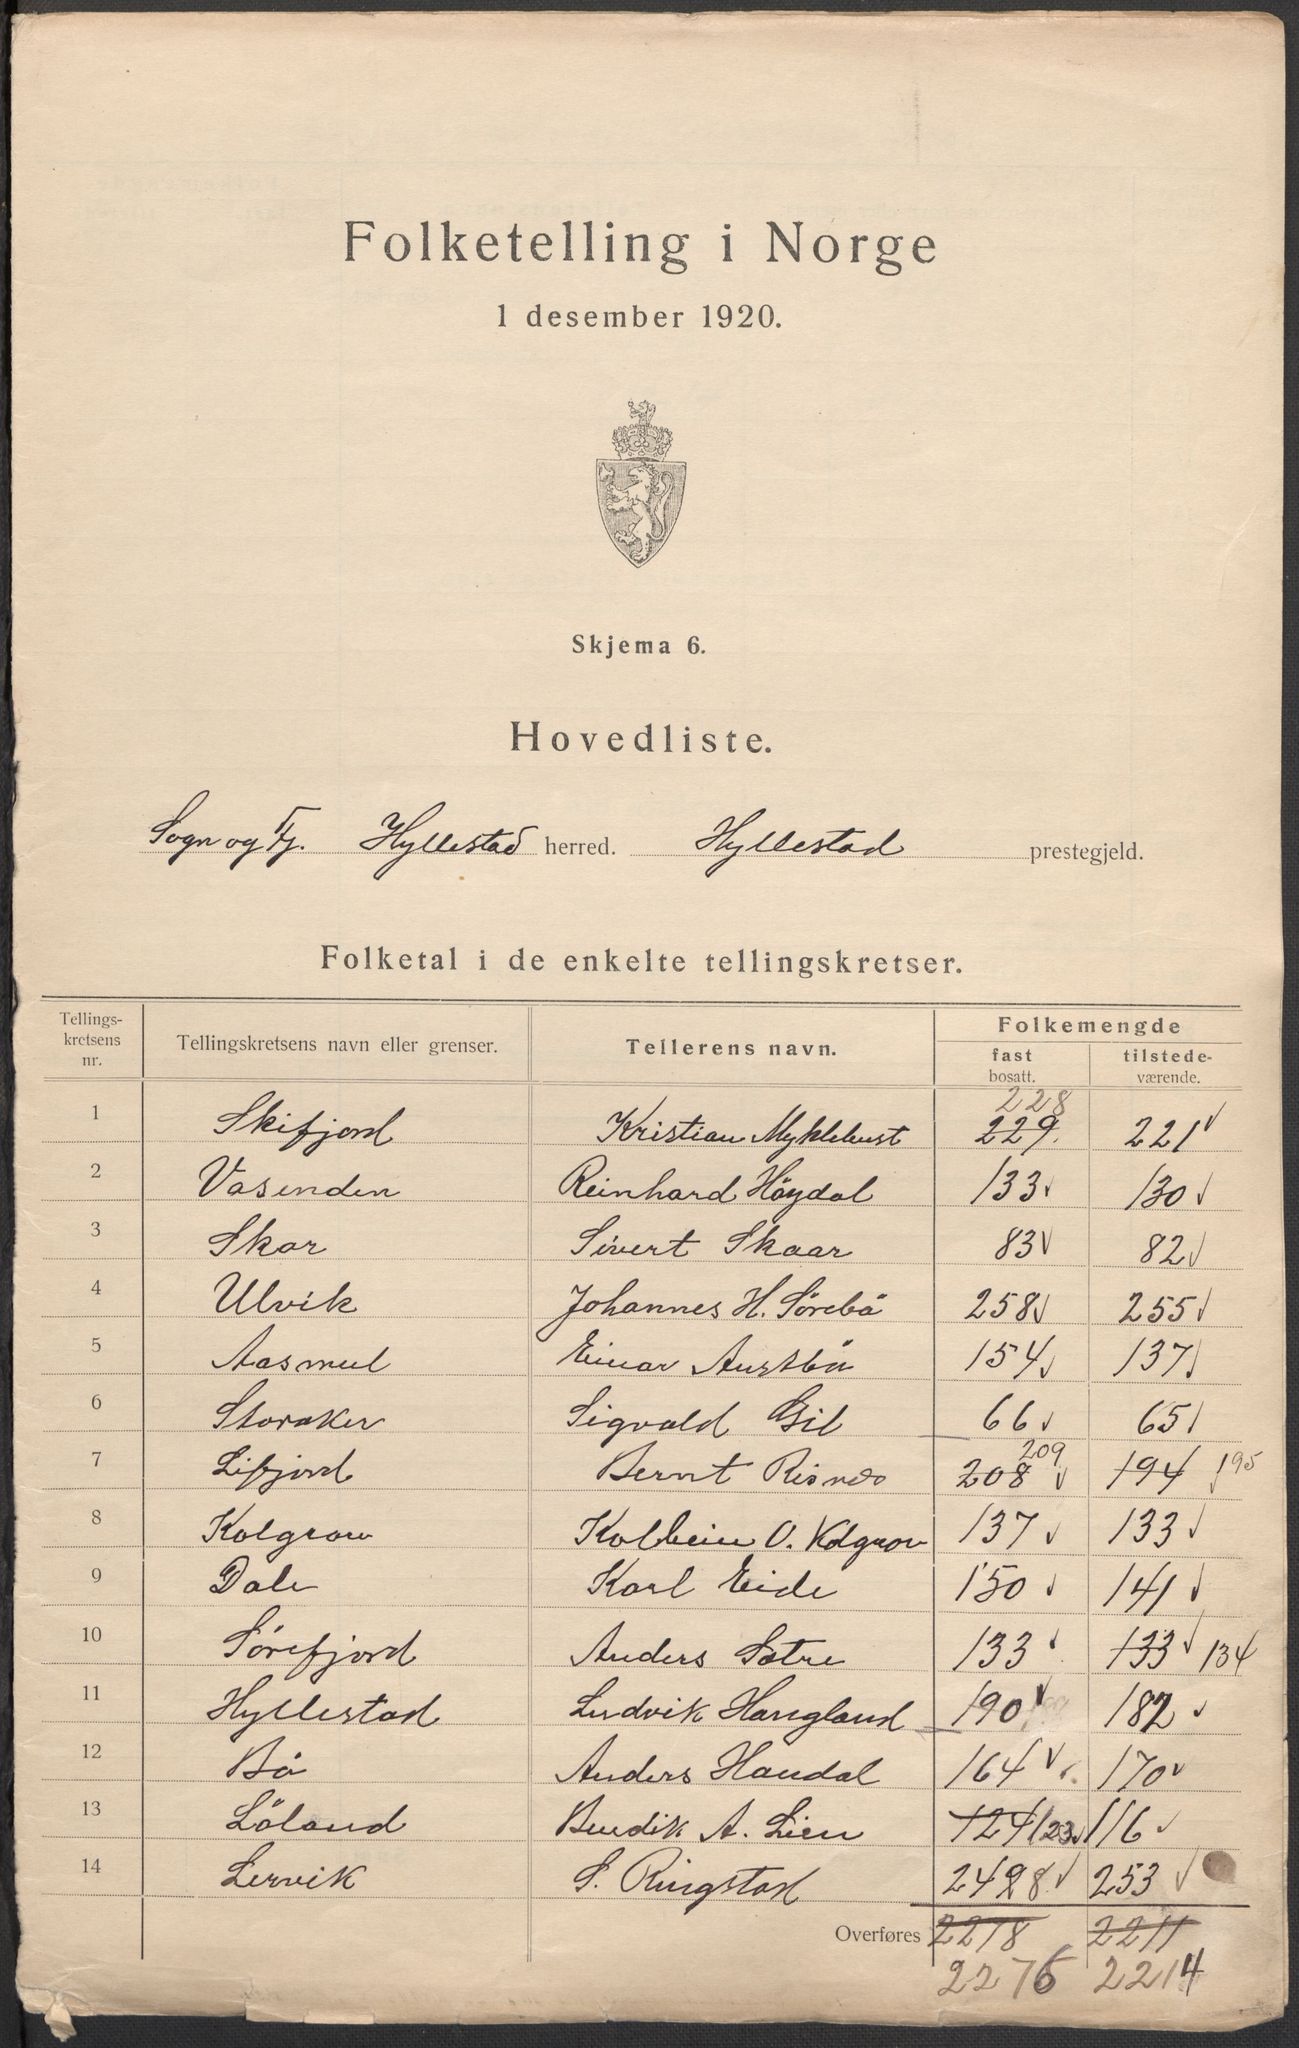 Folketelling i Norge
1 desember 1920.
Skjema 6.
Hovedliste.
Sogn og Fj. Hyllestad herred. Hyllestad prestegjeld.
Folketal i de enkelte tellingskretser.
Tellings-kretsens nr. Tellingskretsens navn eller grenser. Tellerens navn. Folkemengde
fast bosatt. tilstede-værende.
228
1 Skifjord Kristian Myklebust 229 221 √
2 Vasenden Reinhard Höydal 133 √ 130 √
3 Skor Sivert Skaar 83 √ 82 √
4 Ulvik Johannes H. Sörebö 258 √ 255 √
5 Aasmul Einar Austbö 154 √ 137 √
6 Storaker Sigvald Gil 66 √ 65 √
209
7 Lifjord Bernt Risnes 208 √ 194 √ 195
8 Kolgrov Kolbein O. Kolgrov 137 √ 133 √
9 Dale Karl Eide 150 √ 141 √
10 Sörefjord Anders Sætre 133 √ 133 √ 134
11 Hyllestad Ludvik Haugland 190 √ 182 √
12 Bö Anders Haudal 164 √ 170 √
13 Löland Bendik A. Lien 124 123 √ 116 √
14 Lervik S. Ringstad 248 √ 253 √
Overføres 2278 2211
2276 2214